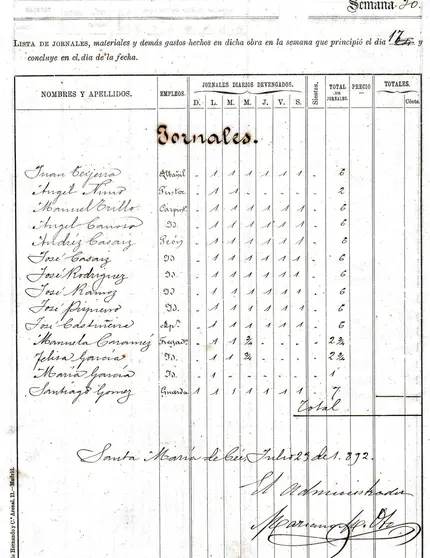 Semana 30.
LISTA DE JORNALES, materiales y demás gastos hechos en dicha obra en la semana que principió el dia 17 y
concluye en el dia de la fecha.
NOMBRES Y APELLIDOS. EMPLEOS. JORNALES DIARIOS DEVENGADOS. Siestas. TOTAL DE JORNALES. PRECIO TOTALES.
D. L. M. M. J. V. S. Cénts.
Jornales.
Juan Teijeira Albañil - 1 1 1 1 1 1 - 6
Angel Nimo Pintor - 1 1 - - - - - 2
Manuel Trillo Carpintº - 1 1 1 1 1 1 - 6
Angel Canoso Id - 1 1 1 1 1 1 - 6
Andrés Casaiz Peón - 1 1 1 1 1 1 - 6
José Casaiz Id - 1 1 1 1 1 1 - 6
José Rodriguez Id - 1 1 1 1 1 1 - 6
José Ramoz Id - 1 1 1 1 1 1 - 6
José Piñeiro Id. - 1 1 1 1 1 1 - 6
José Castiñeira Apº - 1 1 1 1 1 1 - 6
Manuela Caramez Fregadª - 1 1 ¾ - - - - 2 ¾
Felisa García Id. - 1 1 ¾ - - - - 2 ¾
María García Id - 1 - - - - - - 1
Santiago Gomez Guarda 1 1 1 1 1 1 1 - 7
Total
Santa María de Cée, Julio 23 de 1.892.
El Administrador
Mariano
Hernando y Cª Arenal, 11.—Madrid.